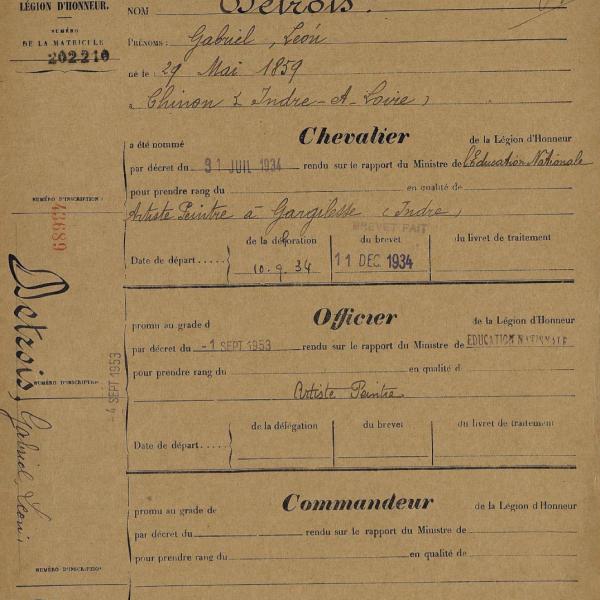 LÉGION D'HONNEUR.
NUMÉRO
DE LA MATRICULE
202210
NOM Detrois.
PRÉNOMS: Gabriel, Léon
né le 29 Mai 1859
à Chinon (Indre-et-Loire)
Chevalier
a été nommé de la Légion d'Honneur
par décret du 31 JUIL 1934 rendu sur le rapport du Ministre de l'Education Nationale
pour prendre rang du en qualité de
NUMÉRO D'INSCRIPTION:
Artiste Peintre à Gargilesse (Indre)
BREVET FAIT
de la décoration du brevet du livret de traitement
Date de départ..... 10.9.34 11 DEC. 1934
Officier
promu au grade d de la Légion d'Honneur
par décret du -1 SEPT 1953 rendu sur le rapport du Ministre de EDUCATION NATIONALE
pour prendre rang du en qualité de
NUMÉRO D'INSCRIPTION
Artiste Peintre
de la délégation du brevet du livret de traitement
Date de départ.
Commandeur
promu au grade de de la Légion d'Honneur
par décret du rendu sur le rapport du Ministre de
pour prendre rang du en qualité de
NUMÉRO D'INSCRIPTION
Detrois, Gabriel, Léon
-4 SEPT 1953